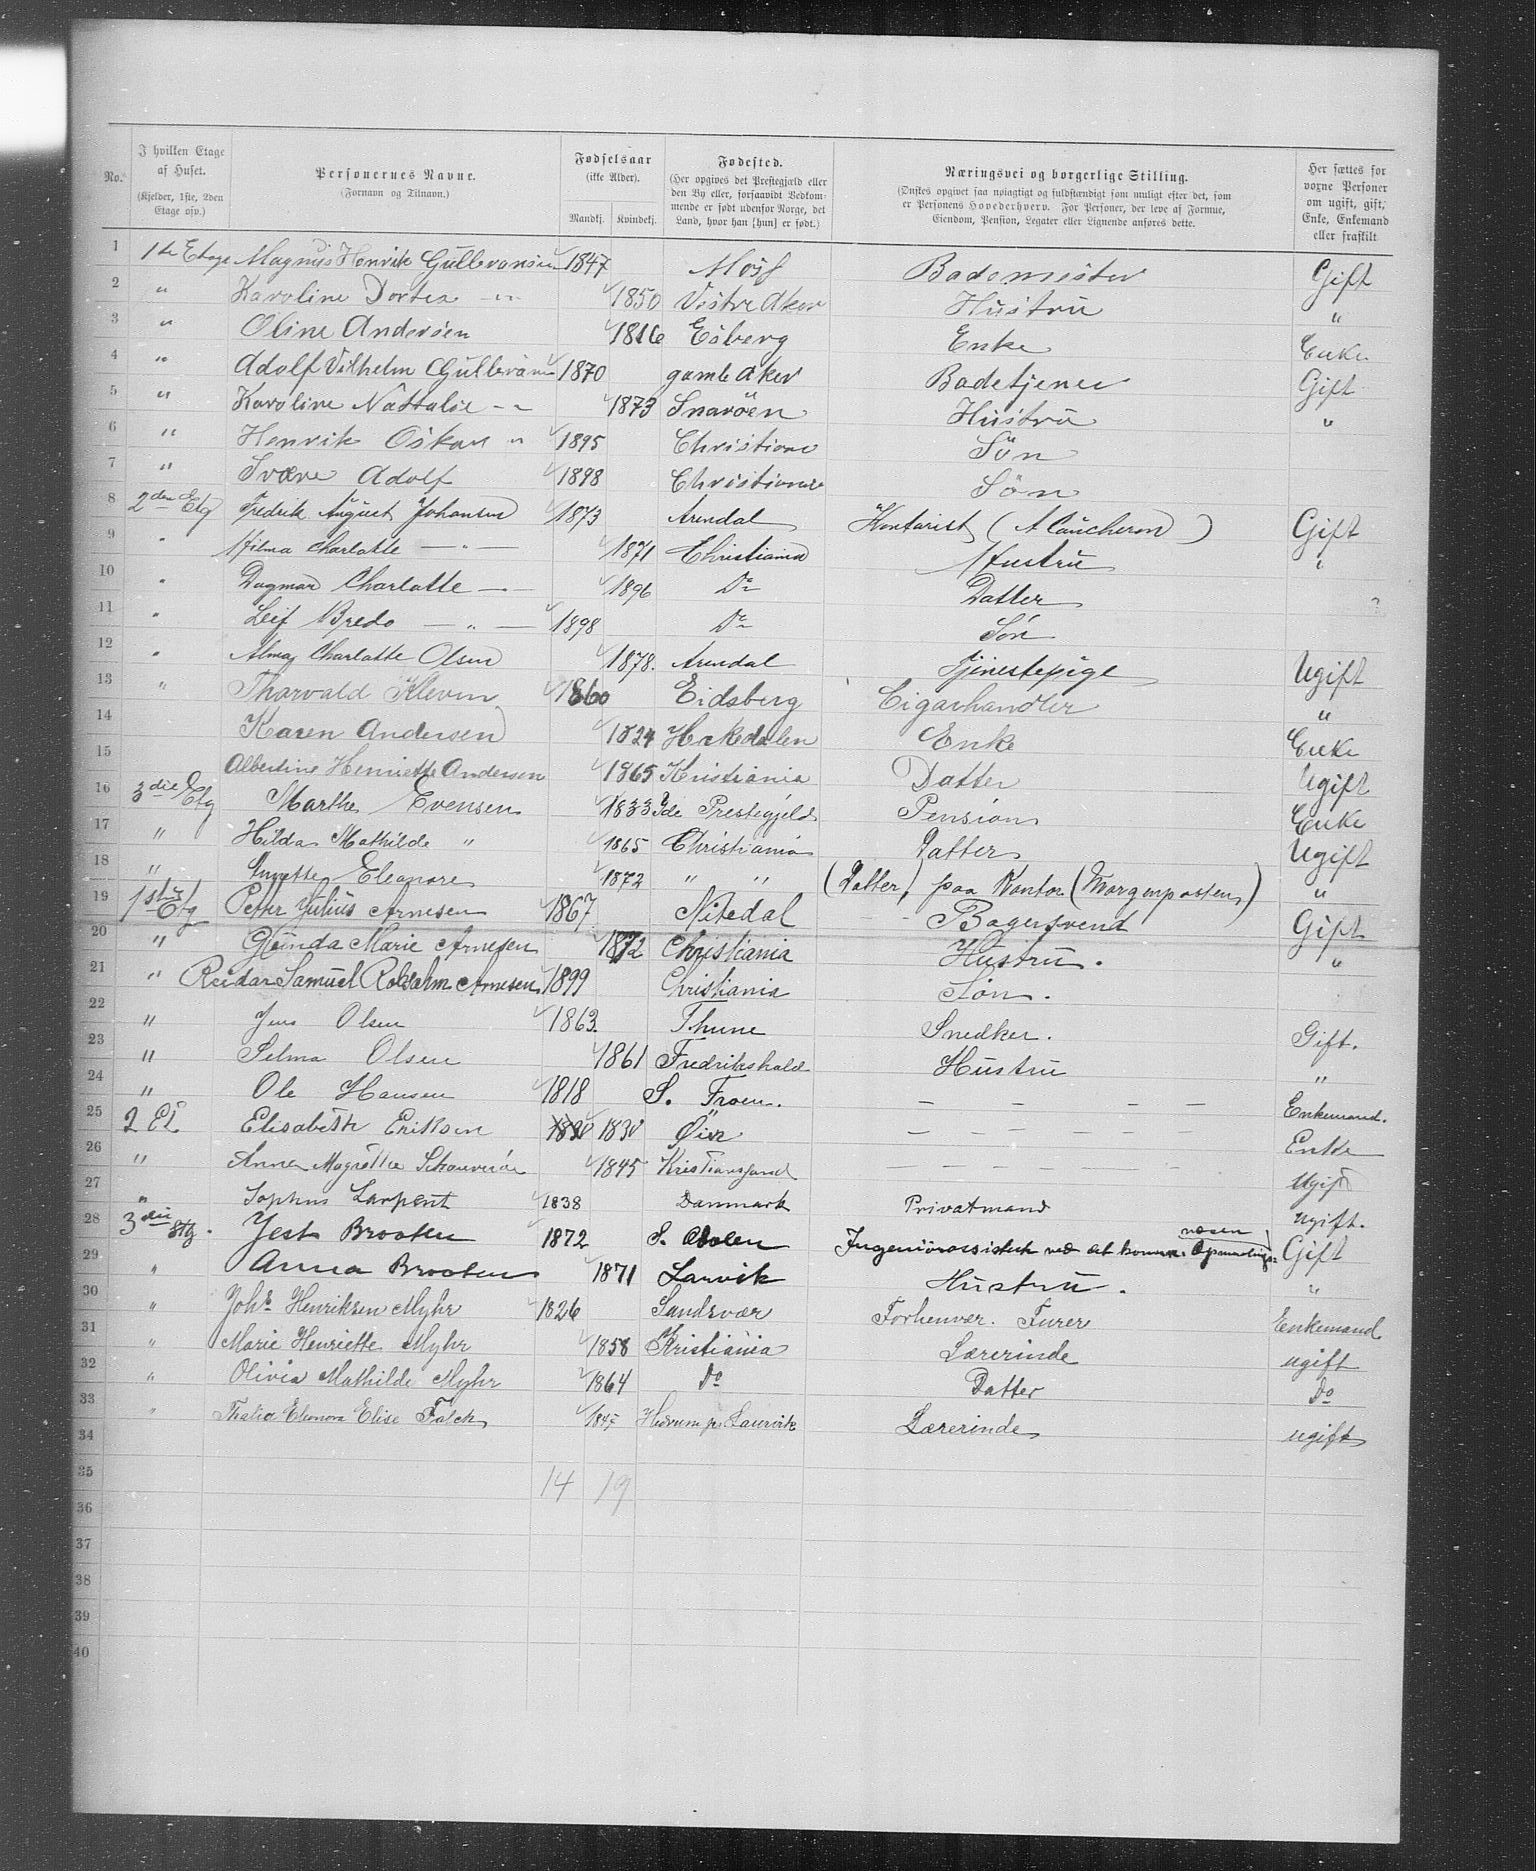 No.
I hvilken Etage af Huset. (Kjelder, 1ste, 2den Etage osv.)
Personernes Navne. (Fornavn og Tilnavn.)
Fødselsaar (ikke Alder). Mandkj. Kvindekj.
Fødested. (Her opgives det Prestegjæld eller den By eller, forsaavidt Vedkommende er født udenfor Norge, det Land, hvor han [hun] er født.)
Næringsvei og borgerlige Stilling. (Ønskes opgivet saa nøiagtigt og fuldstændigt som muligt efter det, som er Personens Hovederhverv. For Personer, der leve af Formue, Eiendom, Pension, Legater eller Lignende anføres dette.
Her sættes for voxne Personer om ugift, gift, Enke, Enkemand eller fraskilt
1 1ste Etage Magnus Henrik Gulbransen 1847 Moss Bademester Gift
2 " Karoline Dortea -"- 1850 Vestre Aker Hustru "
3 " Oline Andersen 1816 Esberg Enke Enke
4 " Adolf Vilhelm Gulbran 1870 gamle Aker Badetjener Gift
5 " Karoline Nattalie -"- 1873 Snarøen Hustru "
6 " Henrik Oskar " 1895 Christiane Søn
7 " Svære Adolf 1898 Christiane Søn
8 2den Etg Fredrik August Johansen 1873 Arendal Kontorist ( ) Gift
9 " Hilma Charlotte — " — 1871 Christiania Hustru "
10 " Dagmar Charlotte — " — 1896 Do Datter
11 " Leif Bredo — " — 1898 Do Søn
12 " Alma Charlotte Olsen 1878. Arendal Tjenestepige Ugift
13 " Thorvald Kleven 1860 Eidsberg Cigarhandler "
14 Karen Andersen 1824 Hakedalen Enke Enke
15 Albertine Henriette Andersen 1865 Kristiania Datter Ugift
16 3die Etg Marthe Evensen 1833 Ide Prestegjeld Pension Enke
17 " Hilda Mathilde " 1865 Christiania Datter Ugift
18 " Eleonore 1872 " " (Datter) paa Kontor (Morgenposten) "
19 1ste Etg Petter Julius Arnesen 1867 Nitedal Bagersvend Gift
20 " Gunda Marie Arnesen 1872 Christiania Hustru. "
21 " Reidar Samuel Arnesen 1899 Christiania Søn.
22 " Jens Olsen 1863. Thune Snedker. Gift.
23 " Selma Olsen 1861 Fredrikshald Hustru "
24 " Ole Hansen 1818 S. Froen. — — — — Enkemand.
25 2 Et Elisabeth Eriksen 1830 1830 Øier — — — — — — Enke
26 " Anna Magrethe 1845 Kristiansand — — — — — — Ugift
27 " Sophus Larpent 1838 Danmark Privatmand ugift.
28 3die Etg. Jest Braaten 1872 S. Odalen Ingeniörassistent ved det komm. Opmaalings-væsen Gift
29 " Anna Braaten 1871 Larvik Hustru. "
30 " Johs Henriksen Myhr 1826 Sandsvær Forhenvær. Furer Enkemand
31 " Marie Henriette Myhr 1858 Kristiania Lærerinde ugift
32 " Olivia Mathilde Myhr 1864 Do Datter Do
33 " Thalia Eleonora Elise Falck 1845 Hedrum pr Laurvik Lærerinde ugift
34
35 14 19
36
37
38
39
40